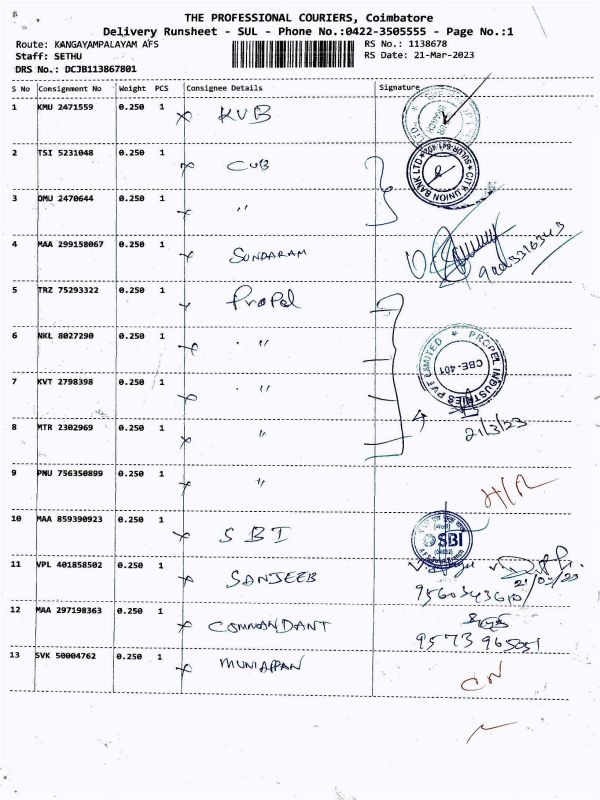 THE PROFESSIONAL COURIERS, Coimbatore
Delivery Runsheet - SUL - Phone No.:0422-3505555 - Page No.:1
Route: KANGAYAMPALAYAM AFS
RS No.: 1138678
Staff: SETHU
RS Date: 21-Mar-2023
DRS No.: DCJB113867801
S No Consignment No Weight PCS Consignee Details Signature
1 KMU 2471559 0.250 1 KVB
2 TSI 5231048 0.250 1 CUB
CITY UNION BANK LTD
3 OMU 2470644 0.250 1 "
4 MAA 299158067 0.250 1 SUNDARAM
5 TRZ 75293322 0.250 1 Propel
6 NKL 8027290 0.250 1 "
PROPEL INDUSTRIES PVT LIMITED
CBE-401
7 KVT 2798398 0.250 1 "
8 MTR 2302969 0.250 1 "
21/3/23
9 PNU 756350899 0.250 1 "
10 MAA 859390923 0.250 1 SBI
SBI
11 VPL 401858502 0.250 1 SANJEEB
12 MAA 297198363 0.250 1 COMMANDANT
13 SVK 50004762 0.250 1 MUNIAPPAN